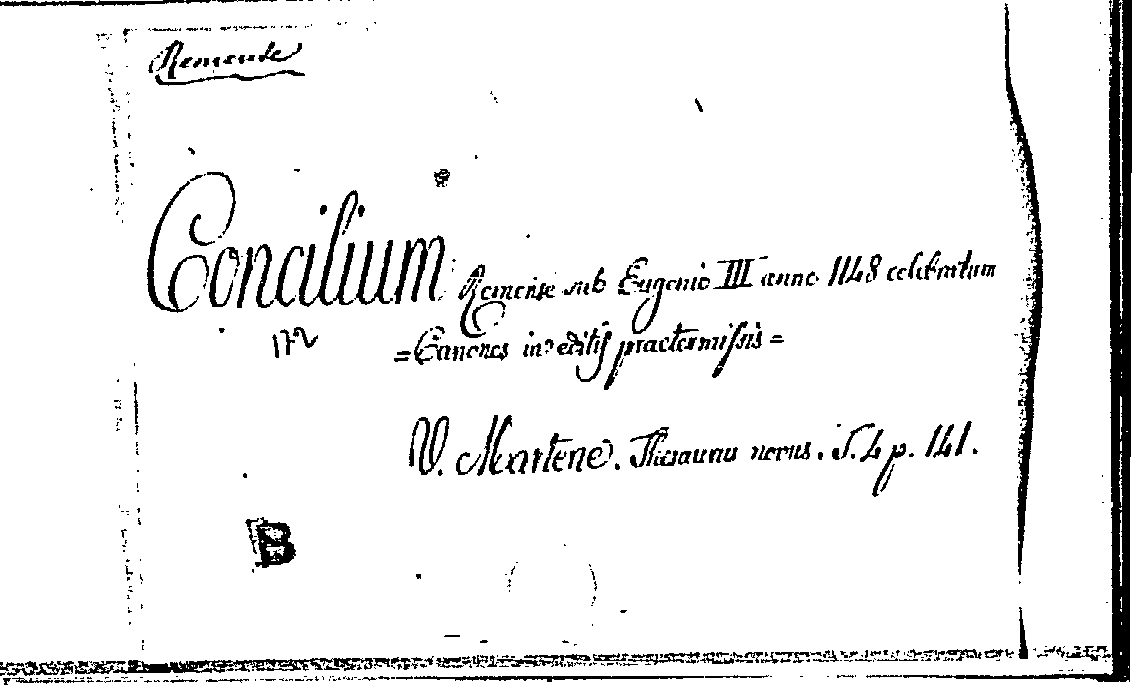 Remense
Concilium Remense sub Eugenio III anno 1148 celebratum
172
= Canones in editis praetermissis =
V. Martene. Thesaurus novus. T. 4 p. 141.
B